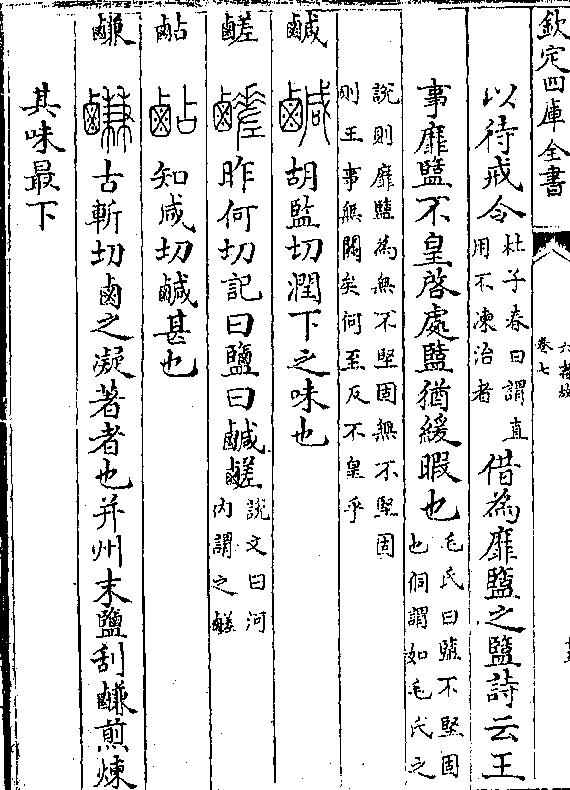 欽定四庫全書
六書故
卷七
以待戒令杜子春曰謂直
用不凍治者借為靡盬之盬詩云王
事靡盬不皇啓處盬猶緩暇也毛氏曰盬不堅固
也侗謂如毛氏之
說則靡盬為無不堅固無不堅固
則王事無闕矣何至反不皇乎
鹹 鹹 胡監切潤下之味也
鹺 鹺 昨何切記曰鹽曰鹹鹺說文曰河
内謂之鹺
𪉜 𪉜 知咸切鹹甚也
鹻 鹻 古斬切鹵之凝著者也并州末鹽刮鹻煎煉
其味最下